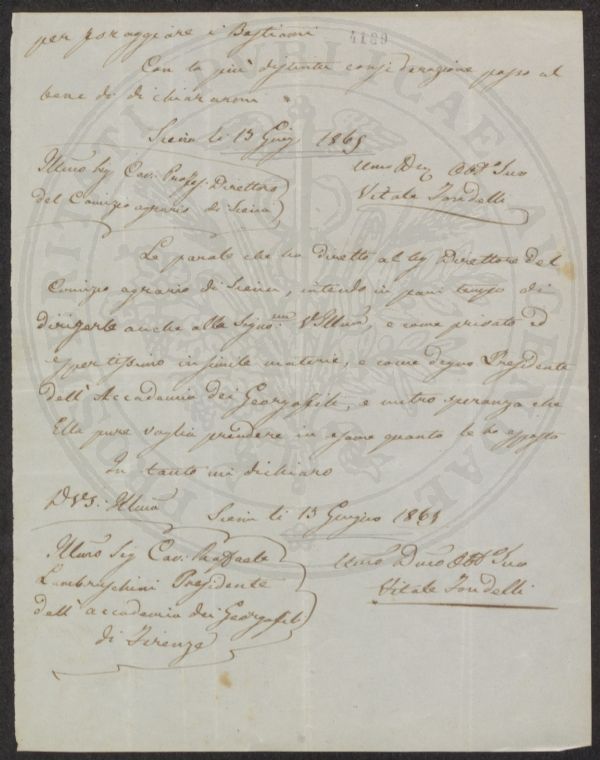 per foraggiare i Bestiami
4189
Con la più distinta considerazione passo al
bene di dichiararmi
Siena li 13 Giug 1865
Illmo Sig Cav. Profes. Direttore
del Comizio agrario di Siena
Umo Dev Obbo Suo
Vitale Tondelli
Le parole che ho diretto al Sig Direttore del
Comizio agrario di Siena, intendo in pari tempo di
dirigerle anche alla Signo. VSIllma, e come privato ed
espertissimo in simile materia, e come degno Presidente
dell' Accademia dei Georgofili, e nutro speranza che
Ella pure voglia prendere in esame quanto le ho esposto
In tanto mi dichiaro
D VS. Illma
Siena li 13 Giugno 1865
Illmo Sig Cav. Raffaele
Lambruschini Presidente
dell' accademia dei Georgofili
di Firenze
Umo Devo Obbo Suo
Vitale Tondelli
PROSPERITATI PUBLICAE AUGENDAE